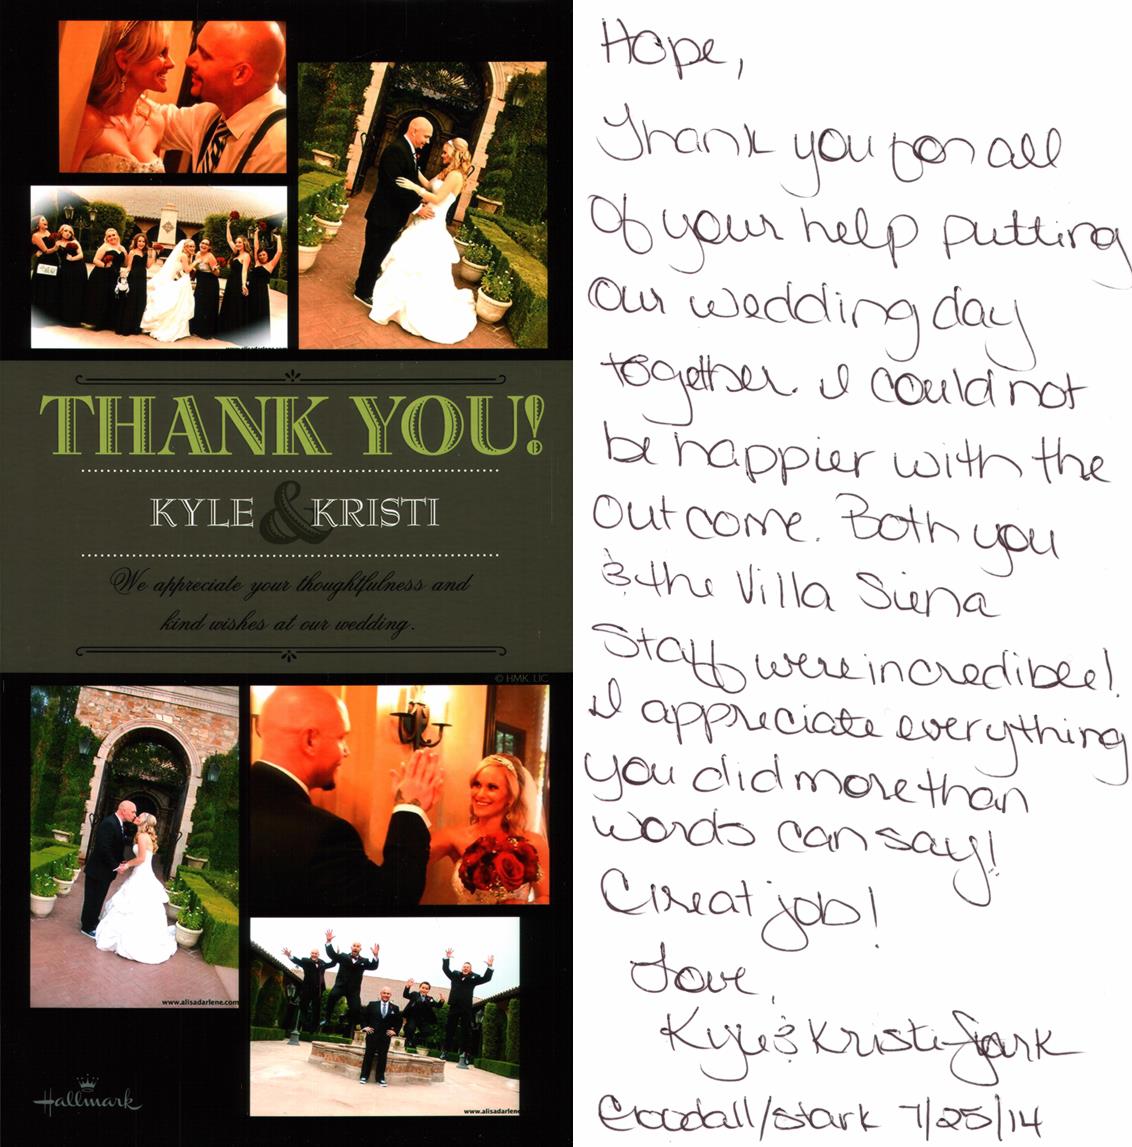 www.alisadarlene.com
THANK YOU!
KYLE & KRISTI
We appreciate your thoughtfulness and
kind wishes at our wedding.
© HMK. LIC
www.alisadarlene.com
www.alisadarlene
Hallmark
Hope,
Thank you for all
of your help putting
our wedding day
together. I could not
be happier with the
outcome. Both you
& the Villa Siena
Staff were incredible!
I appreciate everything
you did more than
words can say!
Great job!
Love,
Kyle & Kristi Stark
Crowdall/Stark 7/25/14